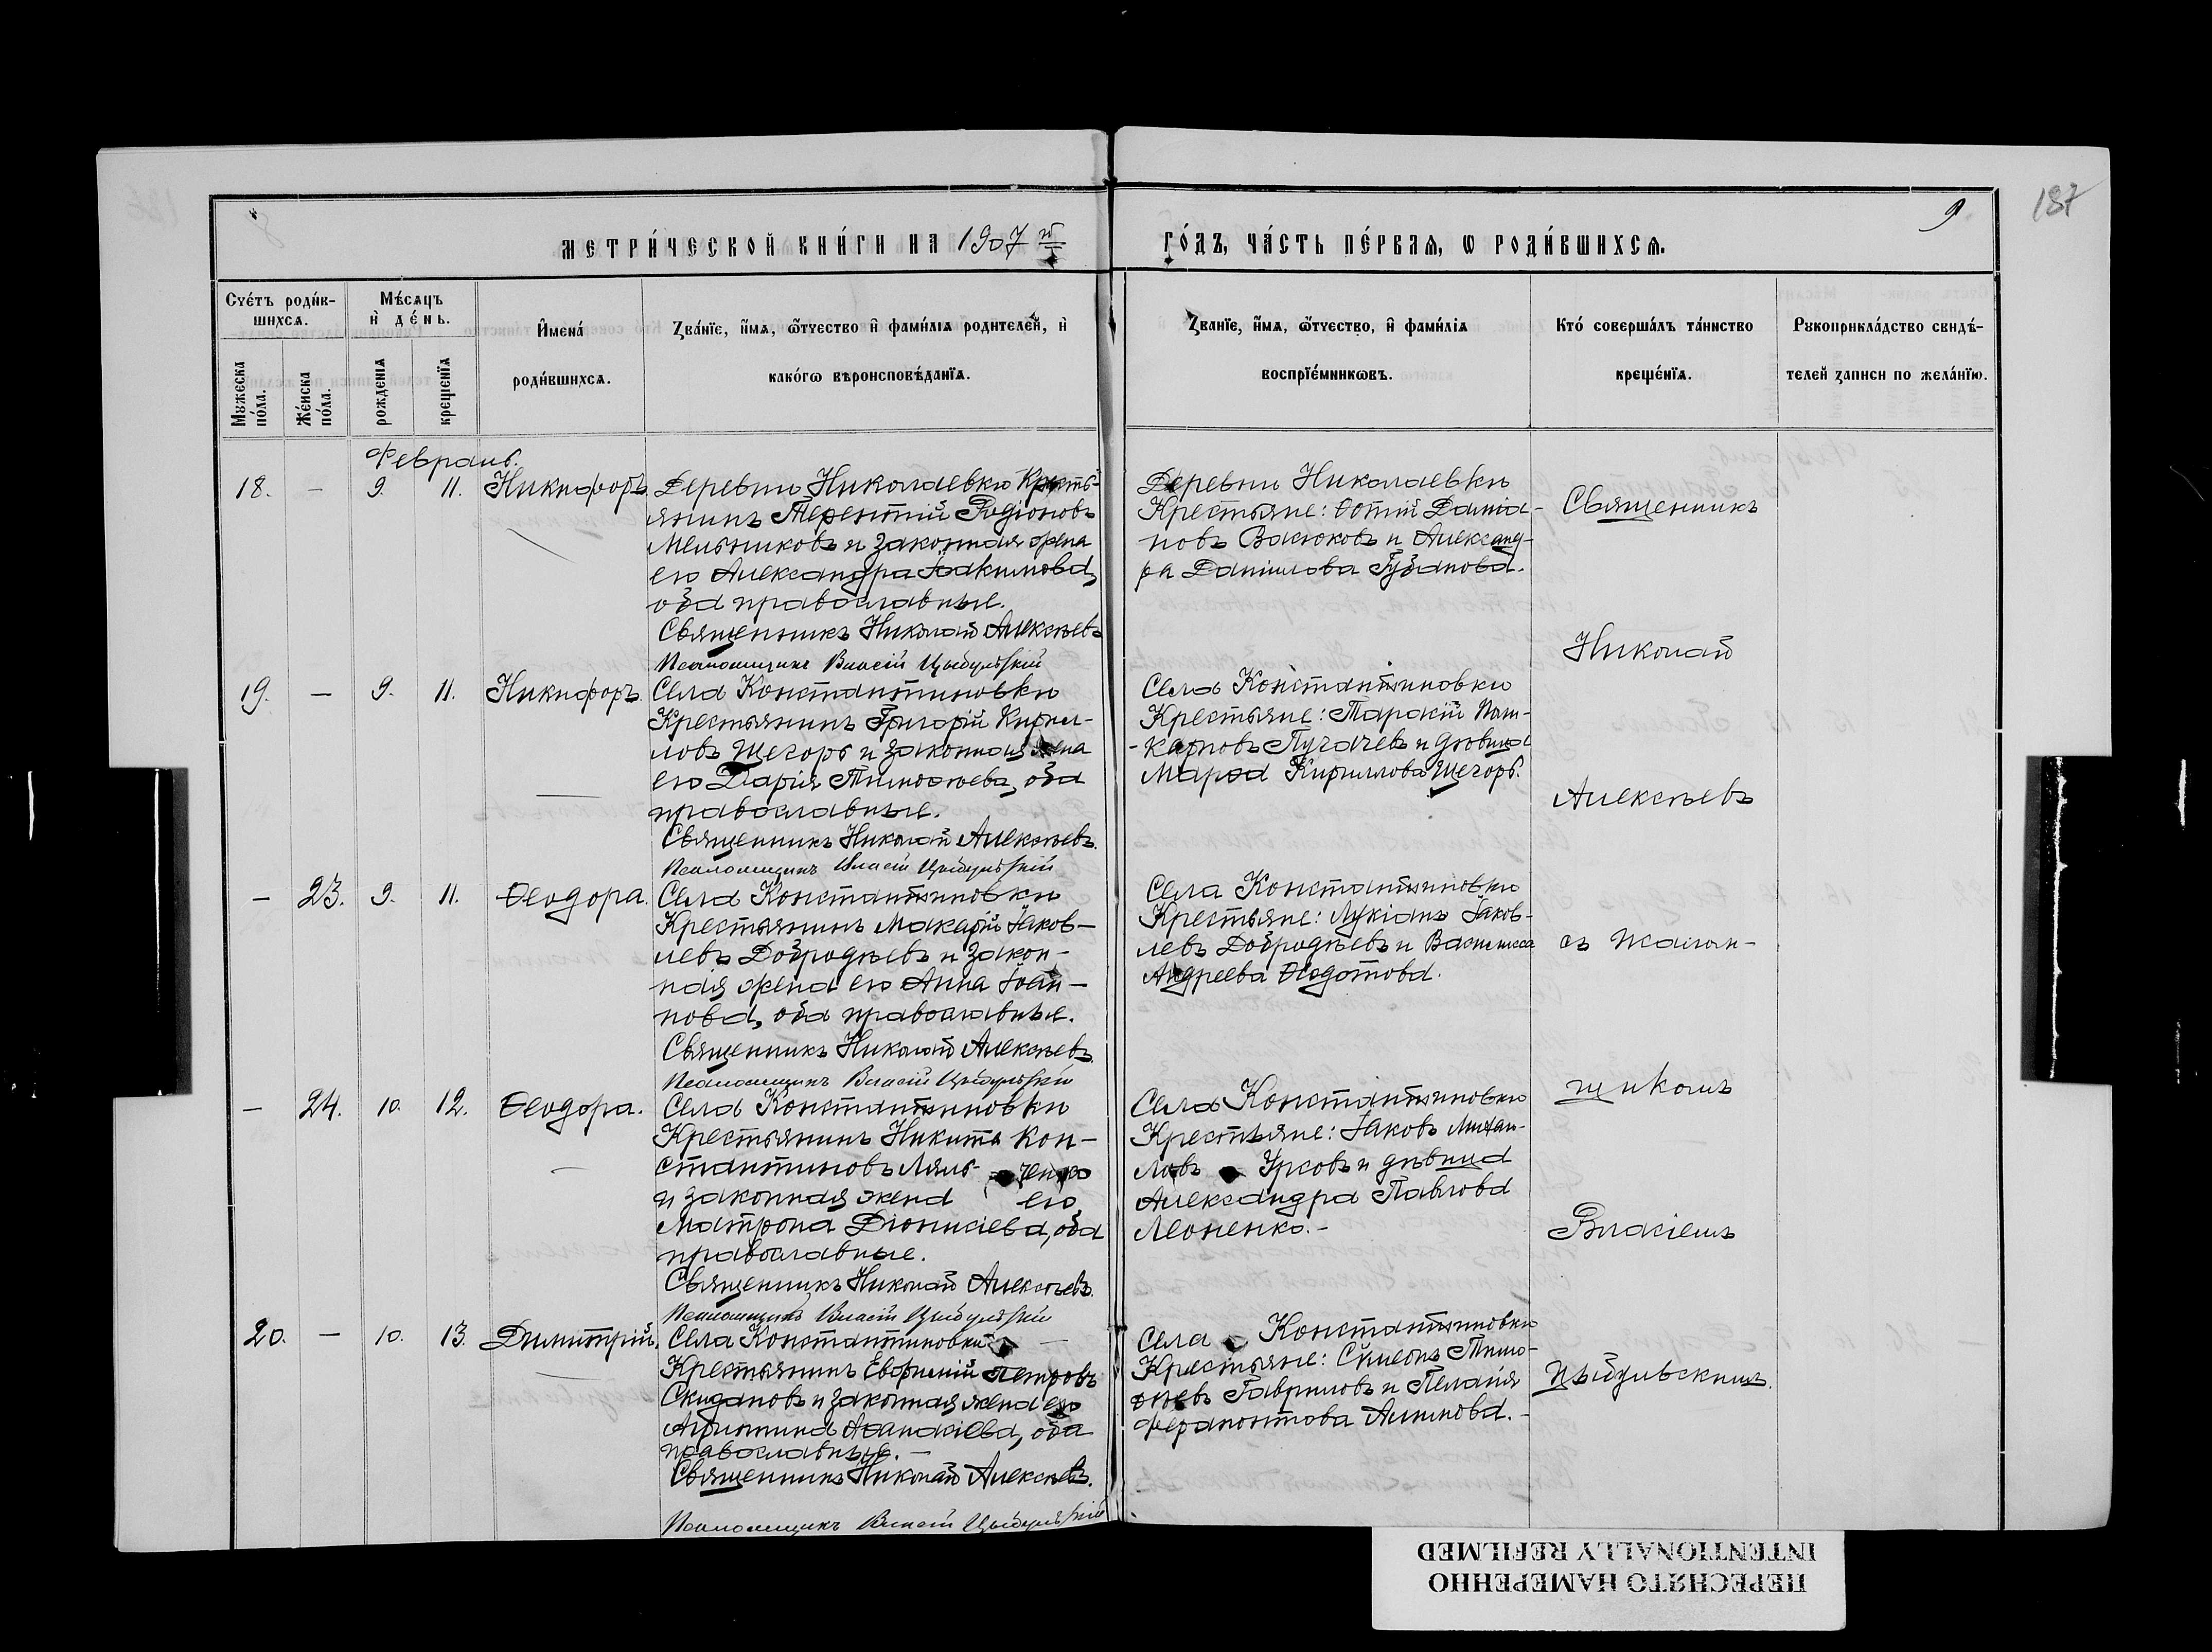 187
9
МЕТРИ́ЧЕСКОЙ КНИ́ГИ НА 1907 й
ГО́ДЪ, ЧА́СТЬ ПЕ́РВАѦ, Ѡ РОДИ́ВШИХСѦ.
Счéтъ роди́в-
шихсѧ.
Мужеска
по́ла.
Же́нска
по́ла.
Мѣ́сѧцъ
и҆ де́нь.
рожденїѧ
крещенїѧ
И҆мена́
роди́вшихсѧ.
Зва́нїе, и҆́мѧ, ѻ҆́тчество и҆ фами́лїѧ родителе́й, и҆
како́гѡ вѣроисповѣ́данїѧ.
Зва́нїе, и҆́мѧ, ѻ҆́тчество, и҆ фами́лїѧ
воспрїе́мникѡвъ.
Кто́ соверша́лъ та́инство
креще́нїѧ.
Рукоприкла́дство свидѣ́-
телей записи по жела́нїю.
Февраль.
18. — 9. 11. Никифоръ.
Деревни Николаевки Кресть-
янинъ Терентій Родіоновъ
Мельниковъ и законная жена
его Александра Іоакимова,
оба православные.
Священникъ Николай Алексѣевъ
Псаломщикъ Власій Цыбульскій
Деревни Николаевки
Крестьяне: Ѳотій Даміа-
новъ Васюковъ и Александ-
ра Даніилова Губанова.
19. — 9. 11. Никифоръ.
Села Константиновки
Крестьянинъ Григорій Кирил-
ловъ Щегорь и законная жена
его Дарія Тимоѳеева, оба
православные.
Священникъ Николай Алексѣевъ.
Псаломщикъ Власій Цыбульскій
Села Константиновки
Крестьяне: Тарасій
Пугачевъ и дѣвица
Марѳа Кириллова Щегорь.
— 23. 9. 11. Ѳеодора.
Села Константиновки
Крестьянинъ Макарій Іаков-
левъ Добродѣевъ и закон-
ная жена его Анна Іоан-
нова, оба православные.
Священникъ Николай Алексѣевъ
Псаломщикъ Власій Цыбульскій
Села Константиновки
Крестьяне: Лукіанъ Іаков-
левъ Добродѣевъ и Василисса
Андреева Ѳедотова.
— 24. 10. 12. Ѳеодора.
Села Константиновки
Крестьянинъ Никита Кон-
стантиновъ Ляль- ченко
и законная жена его
Матрона Діонисіева, оба
православные.
Священникъ Николай Алексѣевъ.
Псаломщикъ Власій Цыбульскій
Села Константиновки
Крестьяне: Іаковъ Михаи-
ловъ Урсовъ и дѣвица
Александра Павлова
Леоненко.-
20. — 10. 13. Димитрій.
Села Константиновки —
Крестьянинъ Евфимій Петровъ
Скидановъ и законная жена его
Агриппина Аѳанасіева, оба
православные. —
Священникъ Николай Алексѣевъ.
Псаломщикъ Власій Цыбульскій
Села Константиновки
Крестьяне: Сѵмеонъ Тимо-
ѳеевъ Гавриловъ и Пелагія
Ферапонтова Алимова.-
Священникъ
Николай
Алексѣевъ
съ псалом-
щикомъ
Власіемъ
Цыбульскимъ.
ПЕРЕСНЯТО НАМЕРЕННО
INTENTIONALLY REFILMED